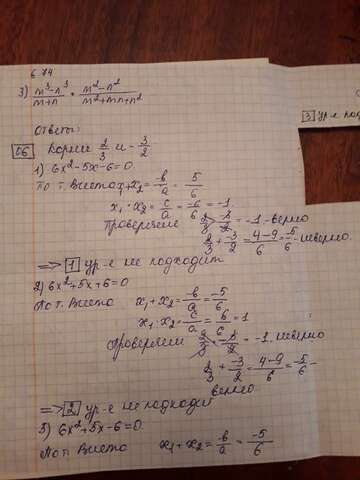 6.74
3) (m³-n³)/(m+n) · (m²-n²)/(m²+mn+n²)
3 ур-е под
ответы:
06 Корни 2/3 и -3/2
1) 6x²-5x-6=0
По т. Виета x₁+x₂=-b/a=5/6
x₁·x₂=c/a=-6/6=-1
Проверяем 2/3·-3/2=-1-верно
2/3+-3/2=(4-9)/6=-5/6-неверно.
=> 1 ур-е не подходит
2) 6x²+5x+6=0
По т. Виета x₁+x₂=-b/a=-5/6
x₁·x₂=c/a=6/6=1
Проверяем 2/3·-3/2=-1. неверно
2/3+-3/2=(4-9)/6=-5/6-
верно
=> 2 ур-е не подходи
3) 6x²+5x-6=0
По т. Виета x₁+x₂=-b/a=-5/6